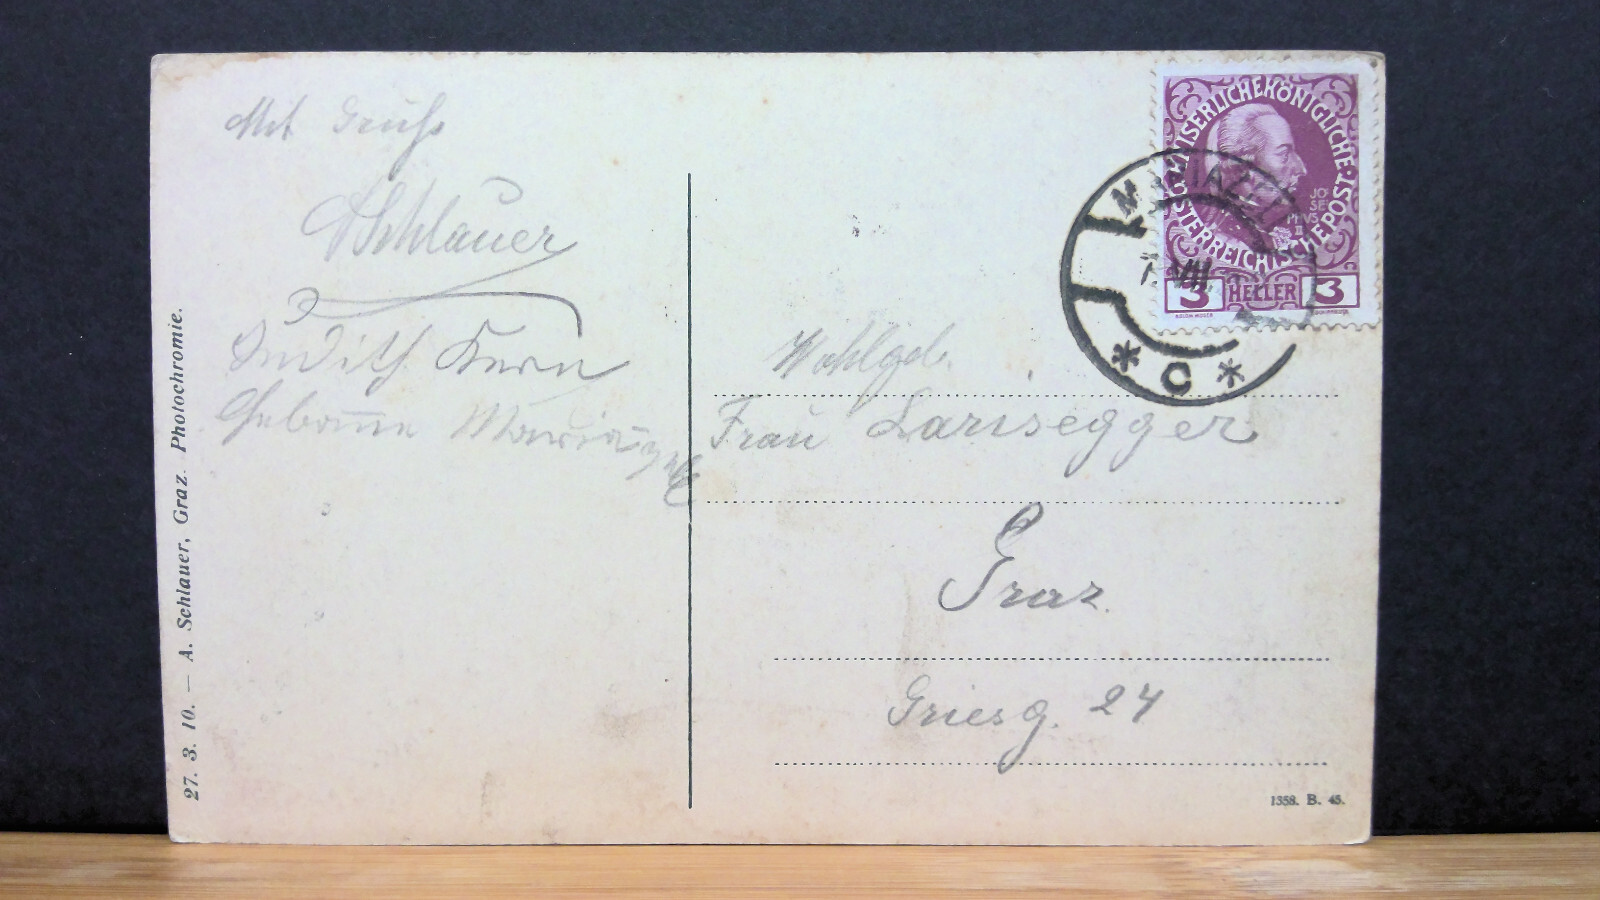 Mit Gruß
ASchlauer
Judith Kern
27. 3. 10. — A. Schlauer, Graz. Photochromie.
KAISERLICHEKÖNIGLICHE
ÖSTERREICHISCHEPOST
3 HELLER 3
C
Wohlgeb.
Frau Larisegger
Graz.
Griesg. 24
1358. B. 45.